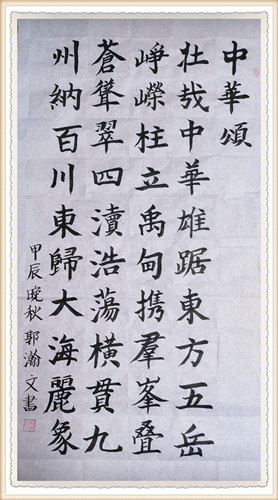 中華頌
壮哉中華雄踞東方五岳
崢嶸柱立禹甸携羣峯叠
蒼聳翠四瀆浩蕩横貫九
州納百川東歸大海麗象
甲辰晚秋郭瀚文書